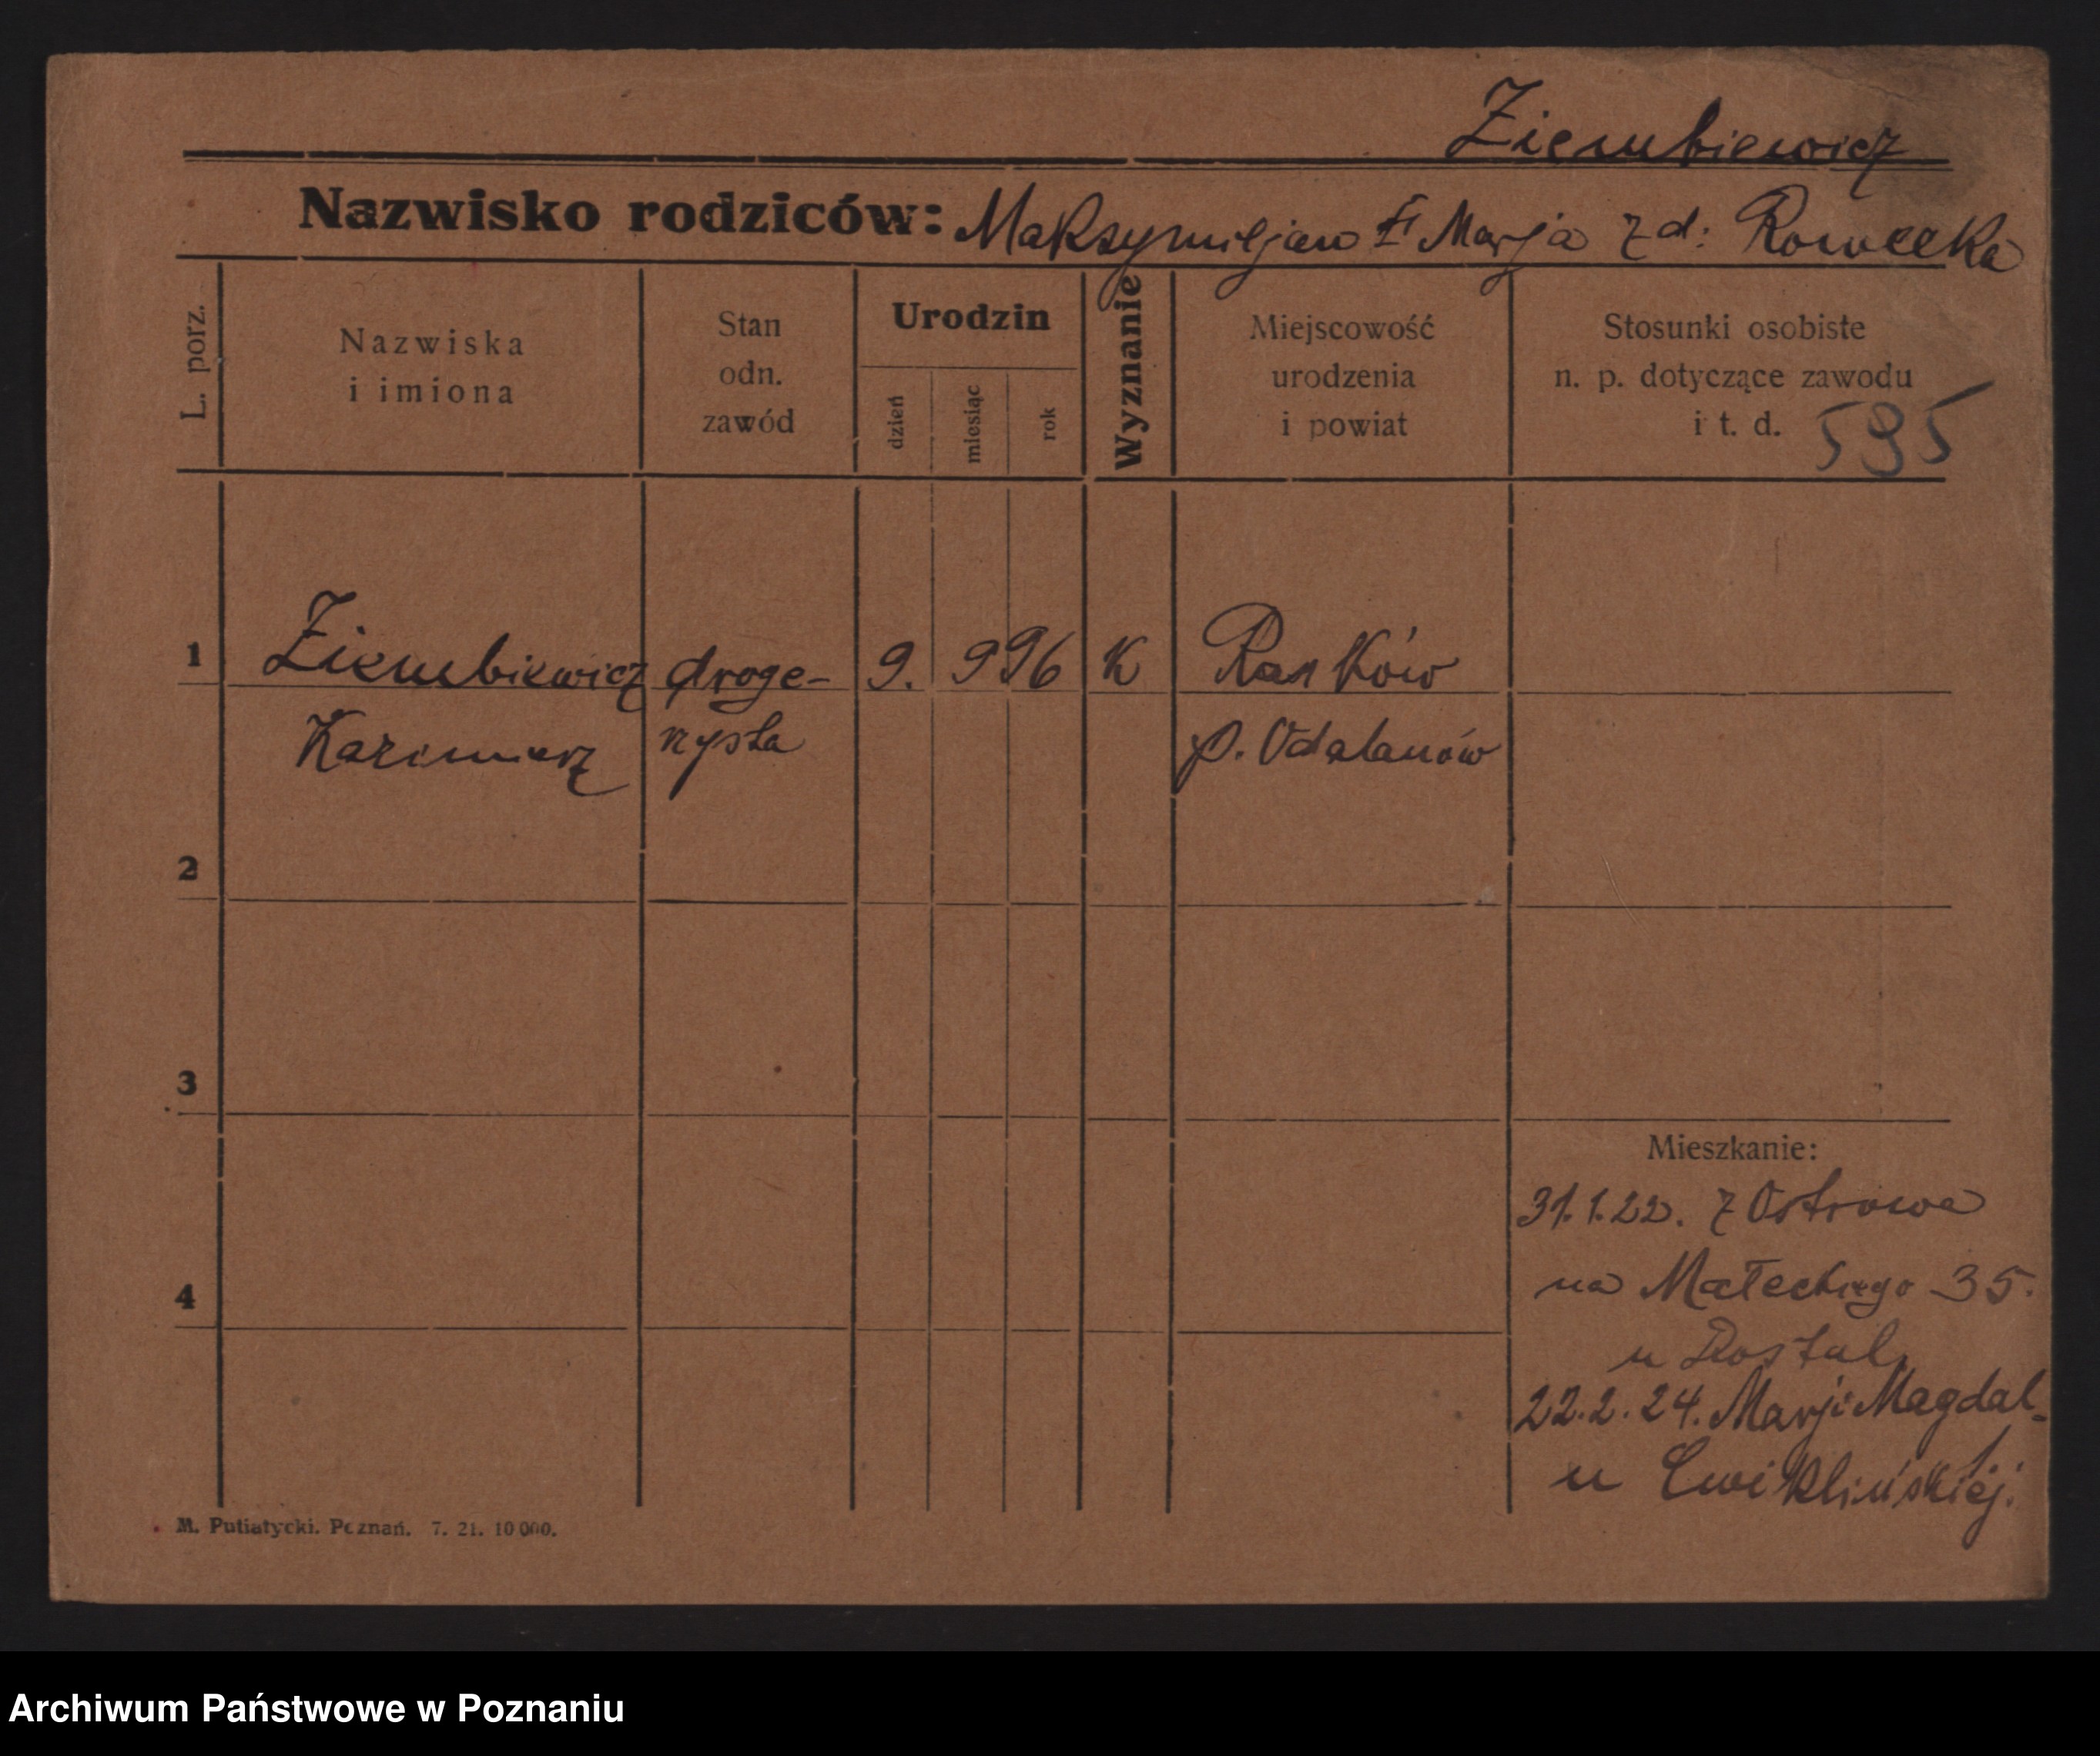 Ziembiewicz
Nazwisko rodziców: Maksymiljan i Marja z d: Rowecka
L. porz.
Nazwiska
i imiona
Stan
odn.
zawód
Urodzin
dzień
miesiąc
rok
Wyznanie
Miejscowość
urodzenia
i powiat
Stosunki osobiste
n. p. dotyczące zawodu
i t. d. 595
1 Ziembiewicz droge- 9. 9 96 K Raszków
Kazimierz rzysta p. Odalanów
2
3
Mieszkanie:
31.1.22. z Ostrowa
na Małeckiego 35.
4
u Rostal
22.2.24. Marji Magdal.
u Ćwiklińskiej.
M. Putiatycki. Poznań. 7. 21. 10 000.
Archiwum Państwowe w Poznaniu